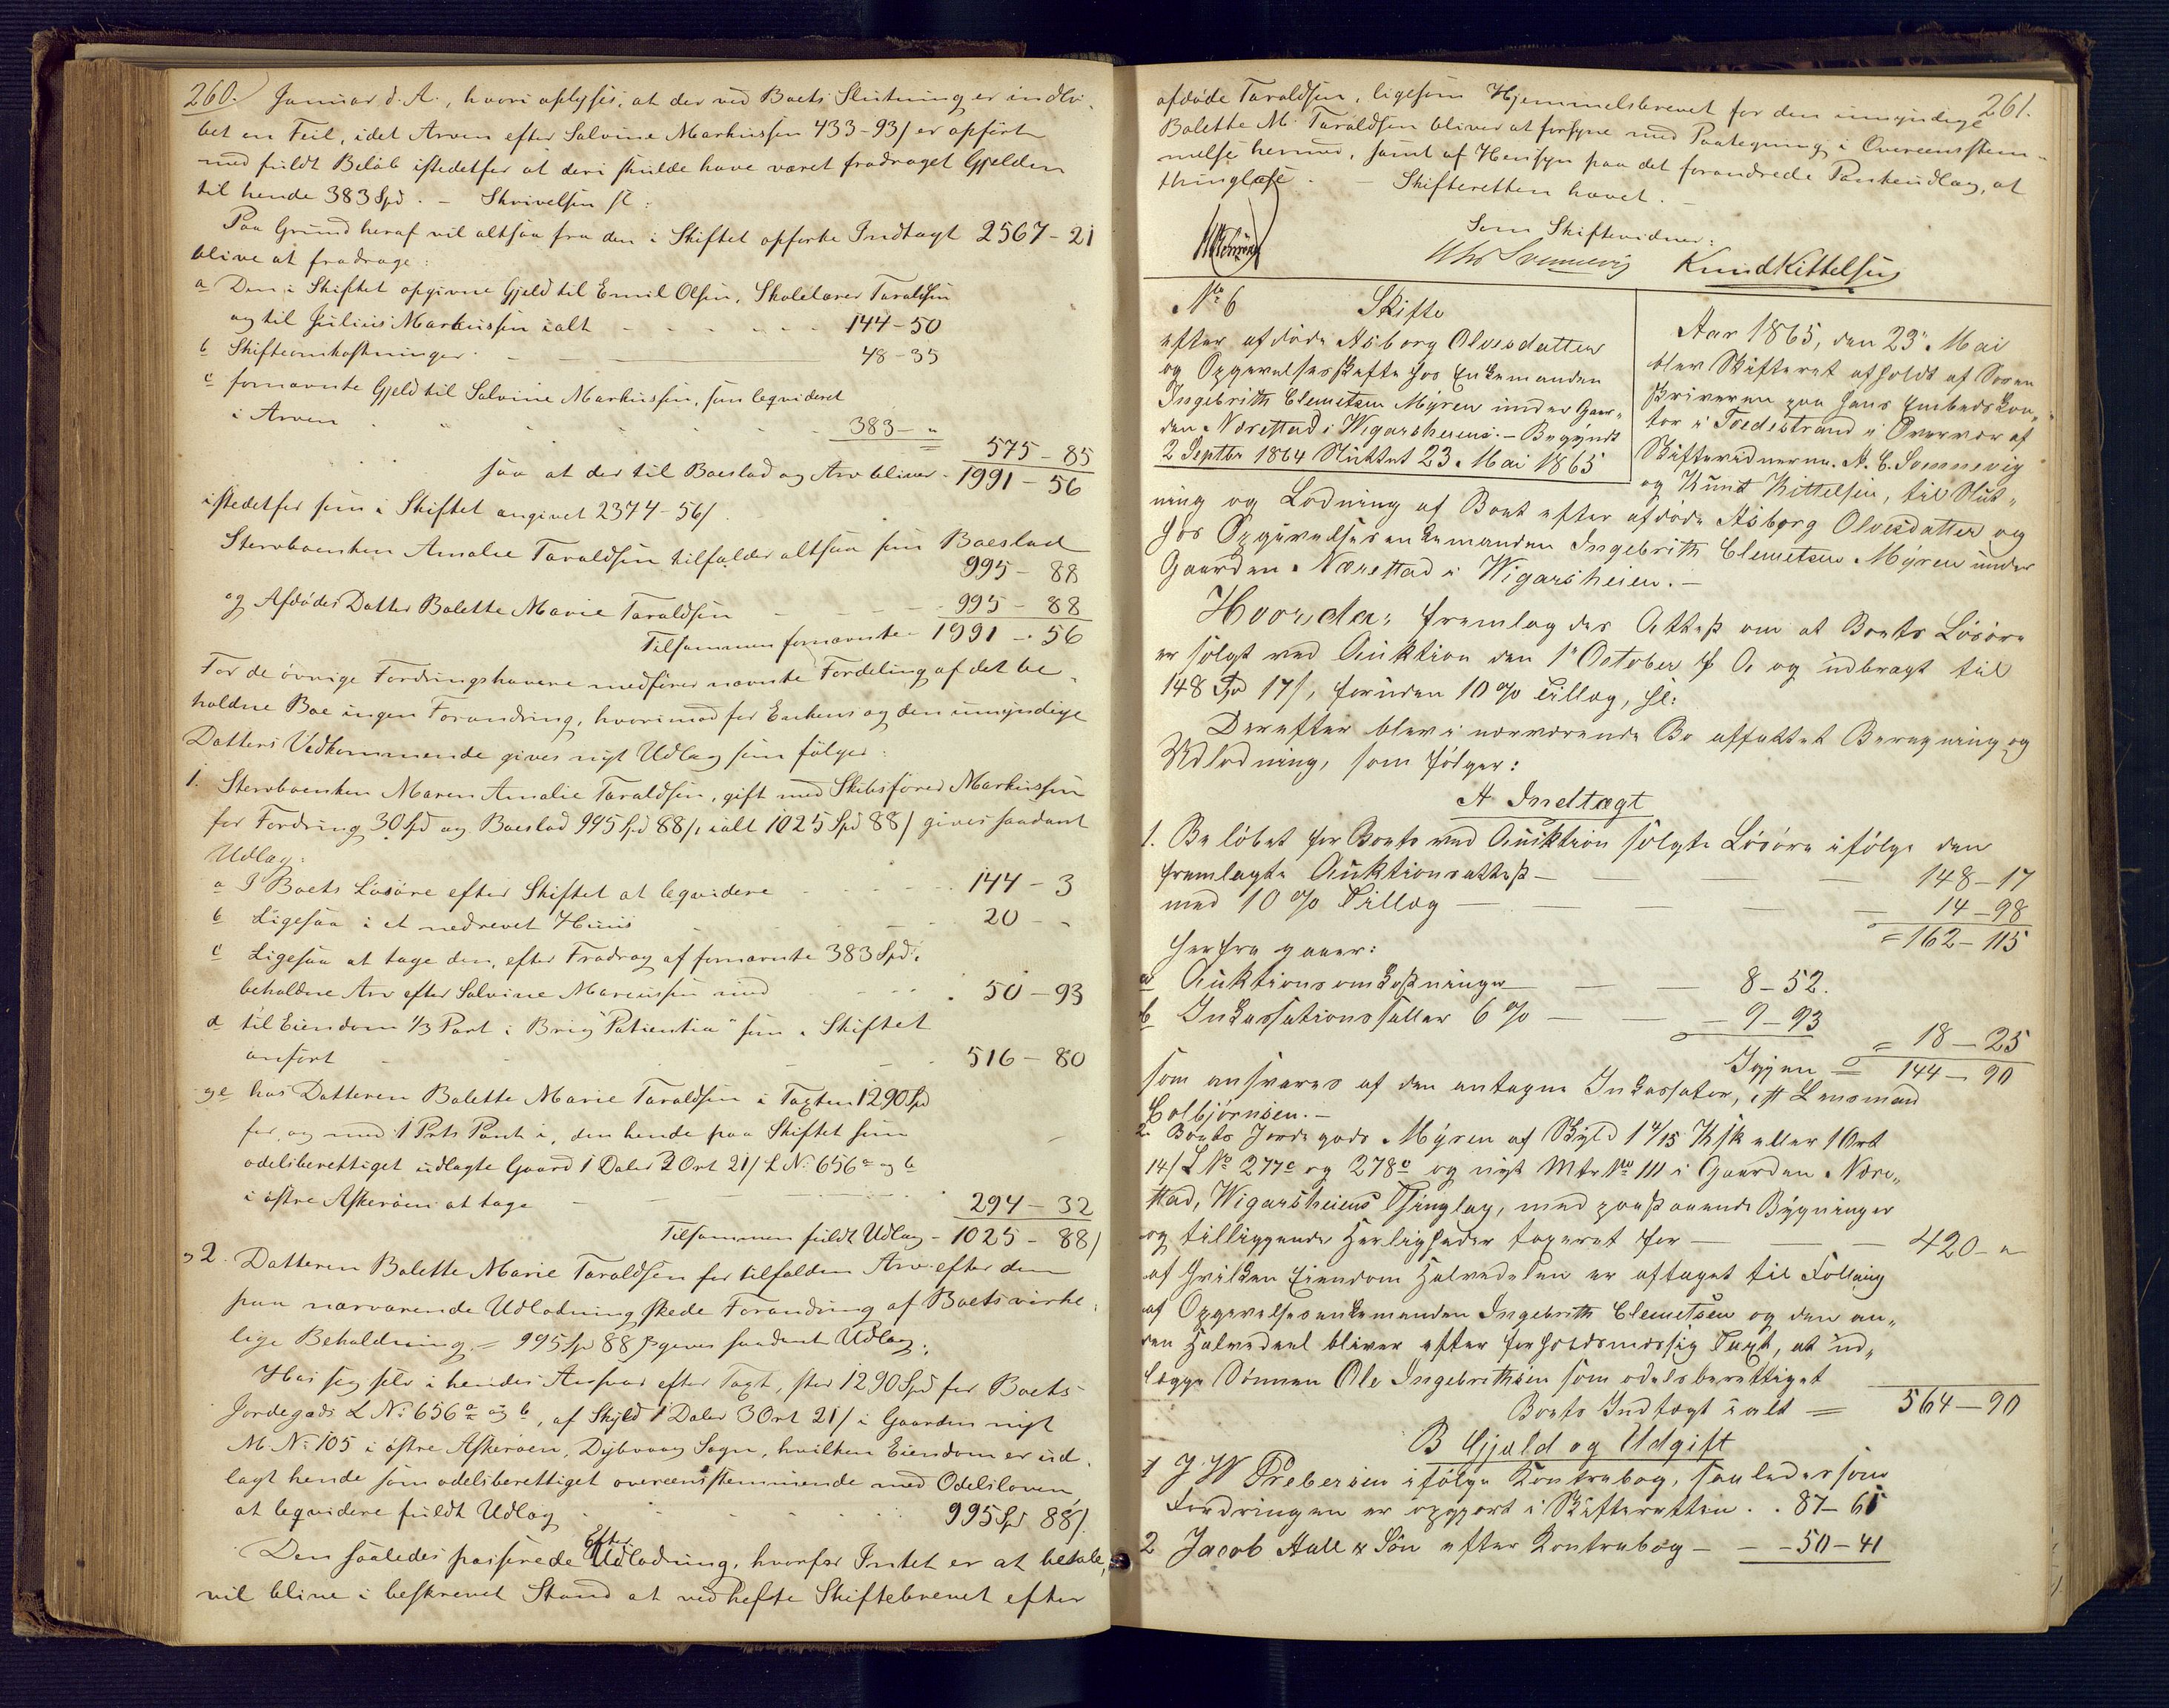 260. Januar d. A., hvori oplyses, at der ved Boets Slutning er indlø-
bet en Feil, idet Arven efter Salvine Markussen 433-93/ er opført
med fuldt Beløb istedetfor at deri skulde have været fradraget Gjelden
til hende 383 Spd. - Skrivelsen fl:
Paa Grund heraf vil altsaa fra den i Skiftet opførte Indtægt 2567-21
blive at fradrage:
a Den i Skiftet opgivne Gjeld til Emil Olsen, Skolelærer Taraldsen
og til Julius Markussen ialt - - - 144-50
b Skifteomkostninger - 48-35
c fornævnte Gjeld til Salvine Markussen, som leqvideret
i Arven - - - 383 - "
575-85
saa at der til Boeslod og Arv bliver - 1991-56
istedetfor som i Skiftet angivet 2374-56/
Stervboenken Amalie Taraldsen tilfalder altsaa som Boeslod
995-88
og Afdødes Datter Bolette Marie Taraldsen - - - 995-88
Tilsammen fornævnte - 1991-56
For de øvrige Fordringshavere medfører nævnte Fordeling af det be-
holdne Boe ingen Forandring, hvorimod for Enkens og den umyndige
Datters Vedkommende gives nyt Udlæg som følger:
1. Stervboenken Maren Amalie Taraldsen, gift med Skibsfører Markussen
for Fordring 30 Spd og Boeslod 995 Spd 88/, ialt 1025 Spd 88/ gives saadant
Udlæg:
a I Boets Løsøre efter Skiftet at leqvidere - - - 144-3
b Ligesaa i et nedrevet Huus - - - 20 - -
c Ligesaa at tage den, efter Fradrag af fornævnte 383 Spd,
beholdne Arv efter Salvine Marcussen med - - - 50-93
d til Eiendom 1/3 Part i Brig "Patientia" som i Skiftet
anført - - - 516-80
e hos Datteren Bolette Marie Taraldsen i Taxten 1290 Spd
for, og med 1 Prts Pant i, den hende paa Skiftet som
odelsberettiget udlagte Gaard 1 Daler 3 Ort 21/ L No 656a og b
i østre Askerøen at tage - - - 294-32
Tilsammen fuldt Udlæg - 1025-88/
2. Datteren Bolette Marie Taraldsen for tilfalden Arv efter den
paa nærværende Udlodning skede Forandring af Boets virke-
lige Beholdning = 995 Sp 88 β gives saadant Udlæg:
Hos sig selv i hendes Ansvar efter Taxt, stor 1290 Spd for Boets
Jordegods L No 656a og b, af Skyld 1 Daler 3 Ort 21/ i Gaarden nyt
M No 105 i østre Askerøen, Dybvaag Sogn, hvilken Eiendom er ud-
lagt hende som odelsberettiget overeensstemmende med Odelsloven,
at leqvidere fuldt Udlæg - - - 995 Spd 88/.
Den saaledes passerede Efter Udlodning, hvorfor Intet er at betale,
vil blive i beskrevet Stand at vedhefte Skiftebrevet efter
261.
afdøde Taraldsen, ligesom Hjemmelsbrevet for den umyndige
Bolette M. Taraldsen bliver at forsyne med Paategning i Overeensstem-
melse hermed, samt af Hensyn paa det forandrede Panteudlæg, at
thinglæse. - Skifteretten hævet. -
Som Skiftevidner:
Chr Sonnevig Knud Kittelsen
No 6 Skifte
efter afdøde Asborg Olvesdatter
og Opgivelsesskifte hos Enkemanden
Ingebrith Clemetsen Myren under Gaar-
den Nærestad i Wigarsheien. - Begyndt
2 Septbr 1864 Sluttet 23 Mai 1865
Aar 1865, den 23 Mai
blev Skifteret afholdt af Soren-
skriveren paa hans Embedskon-
tor i Tvedestrand i Overvær af
Skiftevidnerne A. C. Sonnevig
og Knud Kittelsen, til Slut-
ning og Lodning af Boet efter afdøde Asborg Olvesdatter og
hos Opgivelsesenkemanden Ingebrith Clemetsen Myren under
Gaarden Nærestad i Wigarsheien. -
Hvorda: fremlagdes Attest om at Boets Løsøre
er solgt ved Auktion den 1 October f A og udbragt til
148 Spd 17/, foruden 10 % Tillæg, fl:
Derefter blev i nærværende Bo affattet Beregning og
Udlodning, som følger:
A Indtægt
1. Beløbet for Boets ved Auktion solgte Løsøre ifølge den
fremlagte Auktionsattest - - - 148-17
med 10 % Tillæg - - - 14-98
= 162-115
Herfra gaaer:
a Auktionsomkostninger - - - 8-52.
b Inkassationssallær 6 % - - - 9-93
= 18-25
Igjen = 144-90
som ansvares af den antagne Inkassator, Lensmand
Colbjørnsen. -
2. Boets Jordegods Myren af Skyld 1 4/15 Ksk eller 1 Ort
14/ L No 277c og 278c og nyt Mtr No 111 i Gaarden Nære-
stad, Wigarsheiens Thinglag, med paastaaende Bygninger
og tilliggende Herligheder taxeret for - - - 420 - "
af hvilken Eiendom Halvdelen er aftaget til Følling
af Opgivelsesenkemanden Ingebrith Clemetsen og den an-
den Halvdeel bliver efter forholdsmæssig Taxt, at ud-
lægge Sønnen Ole Ingebrithsen som odelsberettiget
Boets Indtægt ialt = 564-90
B Gjæld og Udgift
1 J W Prebensen ifølge Kontrabog, saaledes som
Fordringen er opgjort i Skifteretten . . 87-65
2 Jacob Aall & Søn efter Kontrabog - - - 50-41